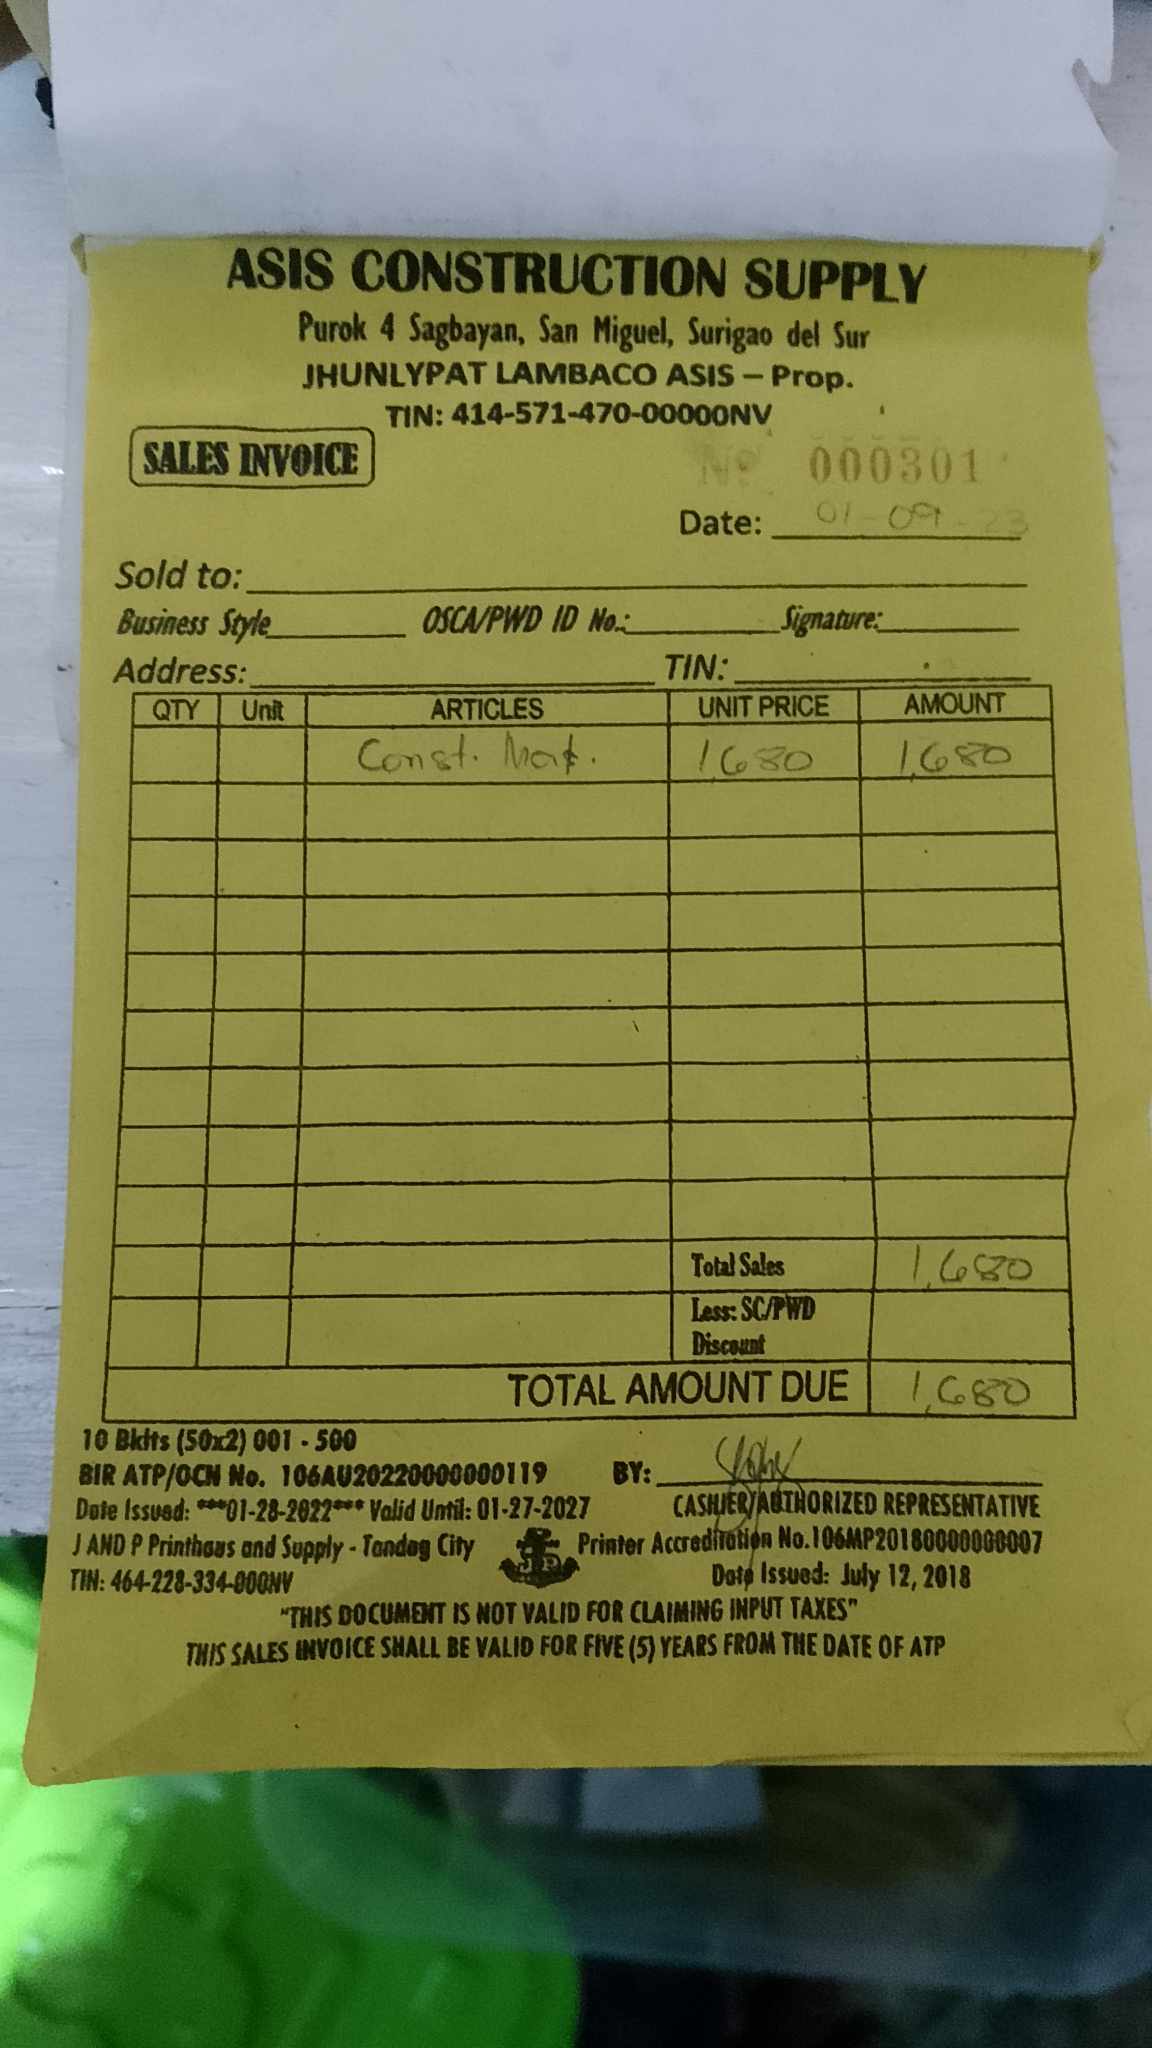 ASIS CONSTRUCTION SUPPLY
Purok 4 Sagbayan, San Miguel, Surigao del Sur
JHUNLYPAT LAMBACO ASIS – Prop.
TIN: 414-571-470-00000NV
SALES INVOICE
Nº 000301
Date: 01-09-23
Sold to:
Business Style OSCA/PWD ID No.: Signature:
Address: TIN:
QTY Unit ARTICLES UNIT PRICE AMOUNT
Const. Mat. 1,680 1,680
Total Sales 1,680
Less: SC/PWD
Discount
TOTAL AMOUNT DUE 1,680
10 Bklts (50x2) 001 - 500
BIR ATP/OCN No. 106AU20220000000119 BY:
Date Issued: ***01-28-2022*** Valid Until: 01-27-2027 CASHIER/AUTHORIZED REPRESENTATIVE
J AND P Printhaus and Supply - Tandag City Printer Accreditation No.106MP20180000000007
TIN: 464-228-334-000NV Date Issued: July 12, 2018
"THIS DOCUMENT IS NOT VALID FOR CLAIMING INPUT TAXES"
THIS SALES INVOICE SHALL BE VALID FOR FIVE (5) YEARS FROM THE DATE OF ATP